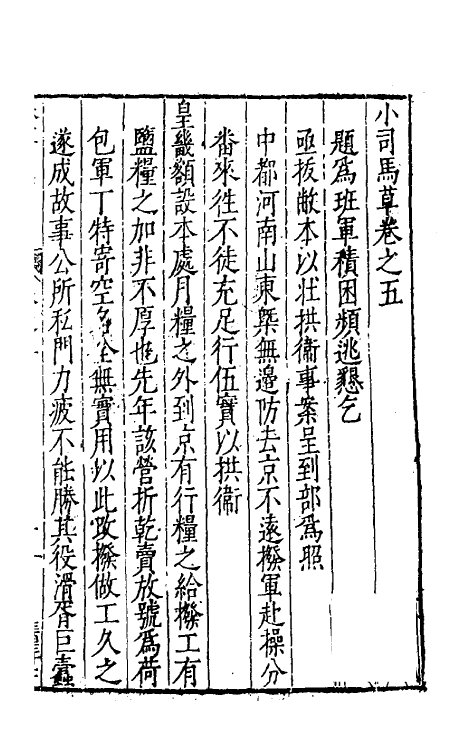 小司馬草卷之五
題為班軍積困頻逃懇乞
亟拔敝本以壯拱衞事案呈到部為照
中都河南山東槩無邊防去京不遠撥軍赴操分
番來往不徒充足行伍實以拱衞
皇畿額設本處月糧之外到京有行糧之給撥工有
鹽糧之加非不厚也先年該營折乾賣放號為荷
包軍丁特寄空名全無實用以此改撥做工久之
遂成故事公所私門力疲不能勝其役滑胥巨蠹